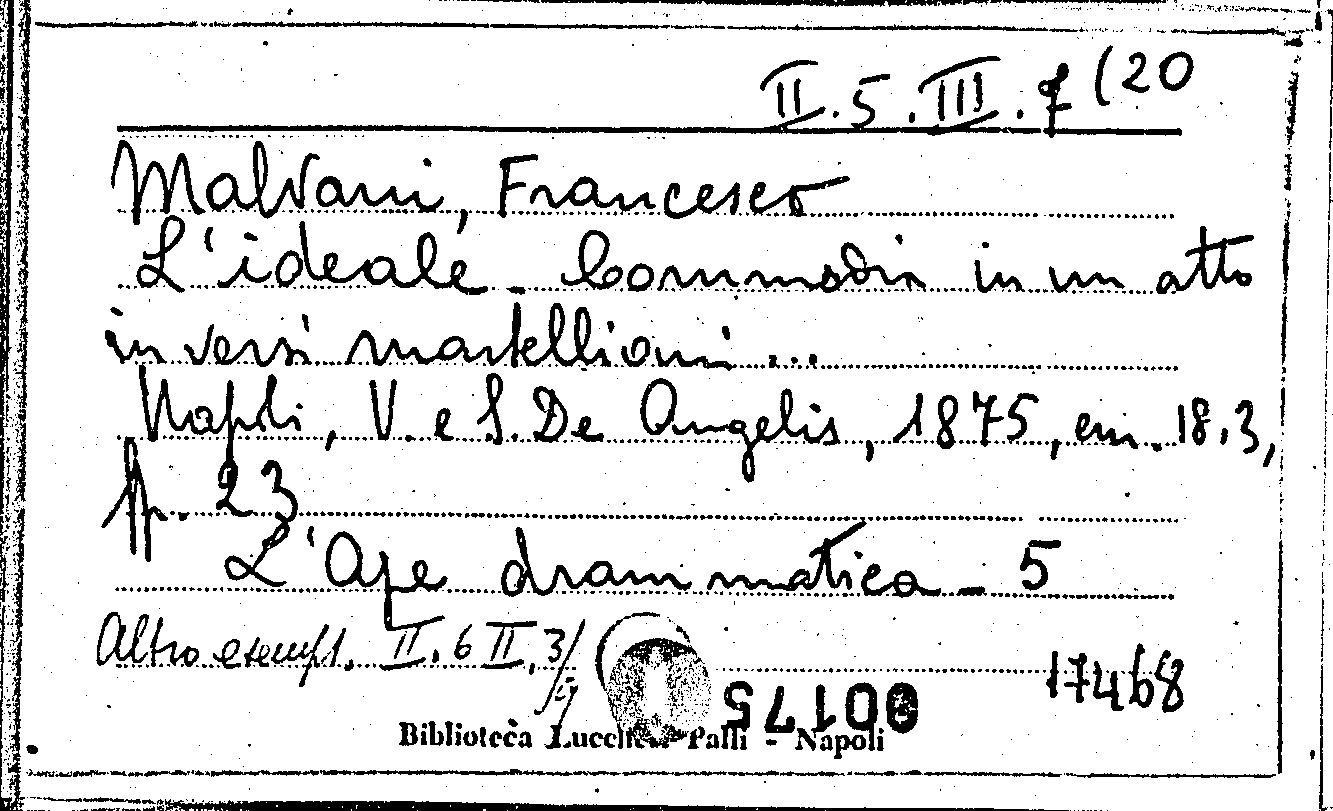 II.5.III.7(20
Malvani, Francesco
L'ideale - Commedia in un atto
in versi martelliani...
Napoli, V. e S. De Angelis, 1875, cm. 18,3,
pp. 23
L'Ape drammatica - 5
Altro esempl. II.6 II.3/
17468
00175
Biblioteca Lucchesi Palli - Napoli